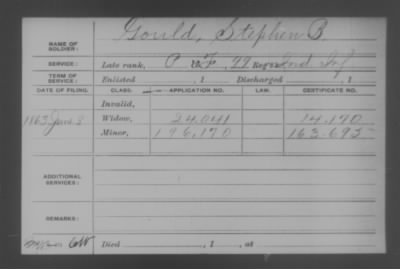 NAME OF SOLDIER: Gould, Stephen B.
SERVICE: Late rank, P F, 22 Reg't Ind Inf
TERM OF SERVICE: Enlisted , 1 Discharged , 1
DATE OF FILING. CLASS. APPLICATION NO. LAW. CERTIFICATE NO.
Invalid,
1863 Jan 8 Widow, 24.041 14.170
Minor, 196.170 163.695
ADDITIONAL SERVICES:
REMARKS:
CW Died , 1 , at